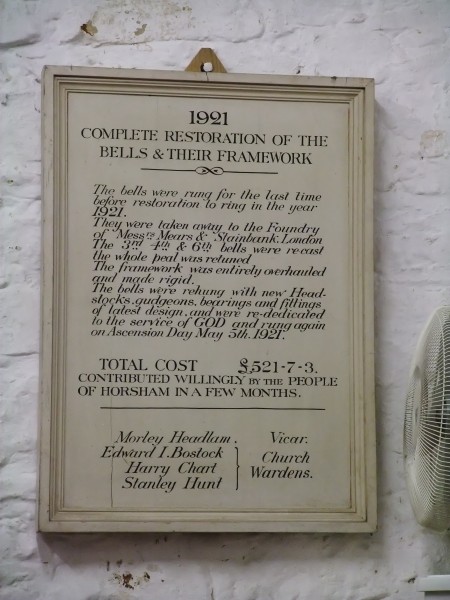 1921
COMPLETE RESTORATION OF THE
BELLS & THEIR FRAMEWORK
The bells were rung for the last time
before restoration to ring in the year
1921.
They were taken away to the Foundry
of Messrs Mears & Stainbank. London
The 3rd 4th & 6th bells were re-cast
the whole peal was retuned
The framework was entirely overhauled
and made rigid.
The bells were rehung with new Head-
stocks, gudgeons, bearings and fittings
of latest design, and were re-dedicated
to the service of GOD and rung again
on Ascension Day May 5th. 1921.
TOTAL COST £521-7-3.
CONTRIBUTED WILLINGLY BY THE PEOPLE
OF HORSHAM IN A FEW MONTHS.
Morley Headlam. Vicar.
Edward I. Bostock Church
Harry Chart Wardens.
Stanley Hunt